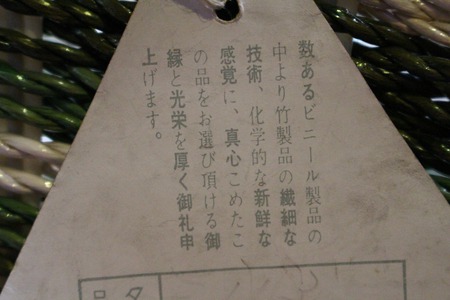 数あるビニール製品の
中より竹製品の繊細な
技術、化学的な新鮮な
感覚に、真心こめたこ
の品をお選び頂ける御
縁と光栄を厚く御礼申
上げます。
品名